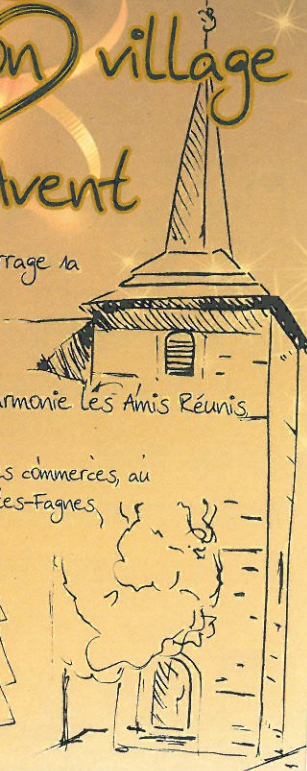 on village
vent
rage 1a
rmonie Les Amis Réunis
s commerces, au
es-Fagnes